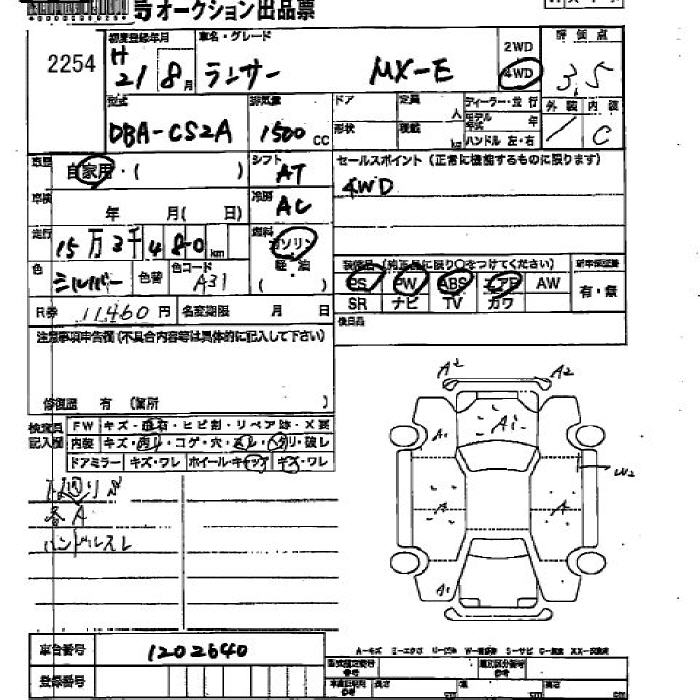 オークション出品票
2254
初度登録年月 車名・グレード 2WD 評価点
H 21 8月 ランサー MX-E 4WD 3.5
型式 排気量 ドア 定員 人 ディーラー・並行 外装 内装
DBA-CS2A 1500cc 形状 積載 kg モデル年式 年 / C
ハンドル 左・右
車歴 自家用・( ) シフト AT セールスポイント (正常に機能するものに限ります)
4WD
車検 年 月( 日) 冷房 AC
走行 15万3千480km 燃料 ガソリン
軽・油
( )
色 シルバー 色替 色コード A31
装備品(純正品に限り○をつけてください) 新車保証書
PS PW ABS エアB AW 有・無
SR ナビ TV カワ
R券 11,460円 名変期限 月 日 後日品
注意事項申告欄(不具合内容等は具体的に記入して下さい)
修復歴 有 (箇所 )
検査員記入欄
FW キズ・飛石・ヒビ割・リペア跡・X要
内装 キズ・汚レ・コゲ・穴・スレ・ヘタリ・破レ
ドアミラー キズ・ワレ ホイールキャップ キズ・ワレ
各A
ハンドルスレ
A2 A2
A1 A1
W2
A A
A1
車台番号 1202640
登録番号
A-キズ
型式指定番号 類別区分番号
参考 長さ cm 幅 cm 高さ cm